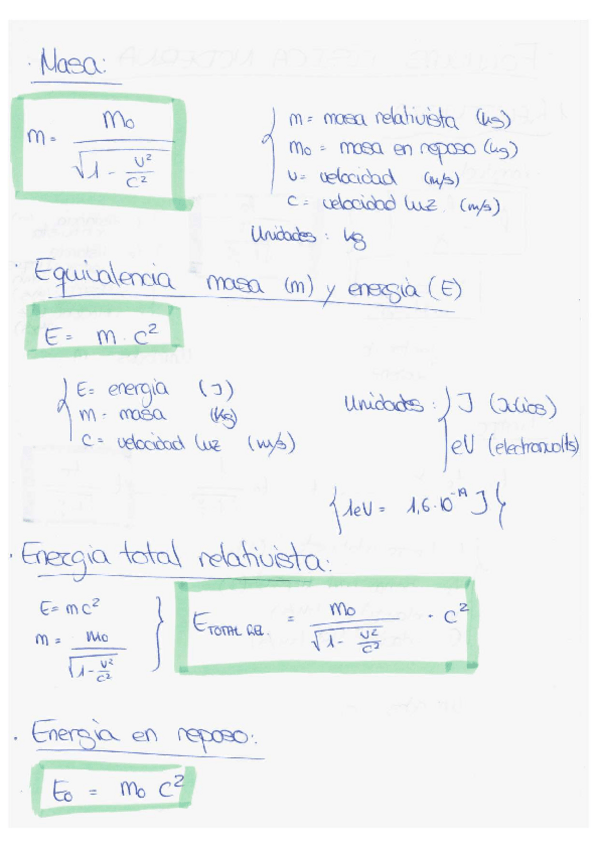 · Masa:
m = m₀ / √(1 - v²/c²)
m = masa relativista (kg)
m₀ = masa en reposo (kg)
v = velocidad (m/s)
c = velocidad luz. (m/s)
Unidades: kg
· Equivalencia masa (m) y energía (E)
E = m · c²
E = energía (J)
m = masa (kg)
c = velocidad luz (m/s)
Unidades: J (Julios)
eV (electronvolts)
{1eV = 1,6·10⁻¹⁹ J}
· Energia total relativista:
E = mc²
m = m₀ / √(1 - v²/c²)
E TOTAL REL. = m₀ / √(1 - v²/c²) · c²
· Energía en reposo:
E₀ = m₀ c²